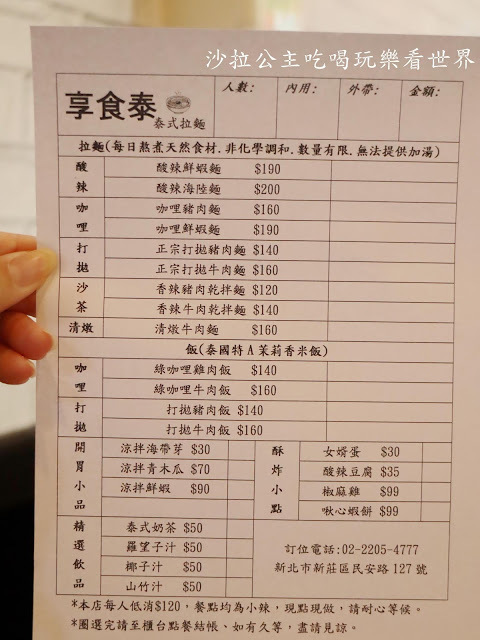 沙拉公主吃喝玩樂看世界
享食泰
泰式拉麵
人數: 內用: 外帶: 金額:
拉麵(每日熬煮天然食材.非化學調和.數量有限.無法提供加湯)
酸辣
酸辣鮮蝦麵 $190
酸辣海陸麵 $200
咖哩
咖哩豬肉麵 $160
咖哩鮮蝦麵 $190
打拋
正宗打拋豬肉麵 $140
正宗打拋牛肉麵 $160
沙茶
香辣豬肉乾拌麵 $120
香辣牛肉乾拌麵 $140
清燉 清燉牛肉麵 $160
飯(泰國特A茉莉香米飯)
咖哩
綠咖哩雞肉飯 $140
綠咖哩牛肉飯 $160
打拋
打拋豬肉飯 $140
打拋牛肉飯 $160
開胃小品
涼拌海帶芽 $30
涼拌青木瓜 $70
涼拌鮮蝦 $90
酥炸小點
女婿蛋 $30
酸辣豆腐 $35
椒麻雞 $99
啾心蝦餅 $99
精選飲品
泰式奶茶 $50
羅望子汁 $50
椰子汁 $50
山竹汁 $50
訂位電話:02-2205-4777
新北市新莊區民安路127號
*本店每人低消$120，餐點均為小辣，現點現做，請耐心等候。
*圈選完請至櫃台點餐結帳、如有久等，盡請見諒。